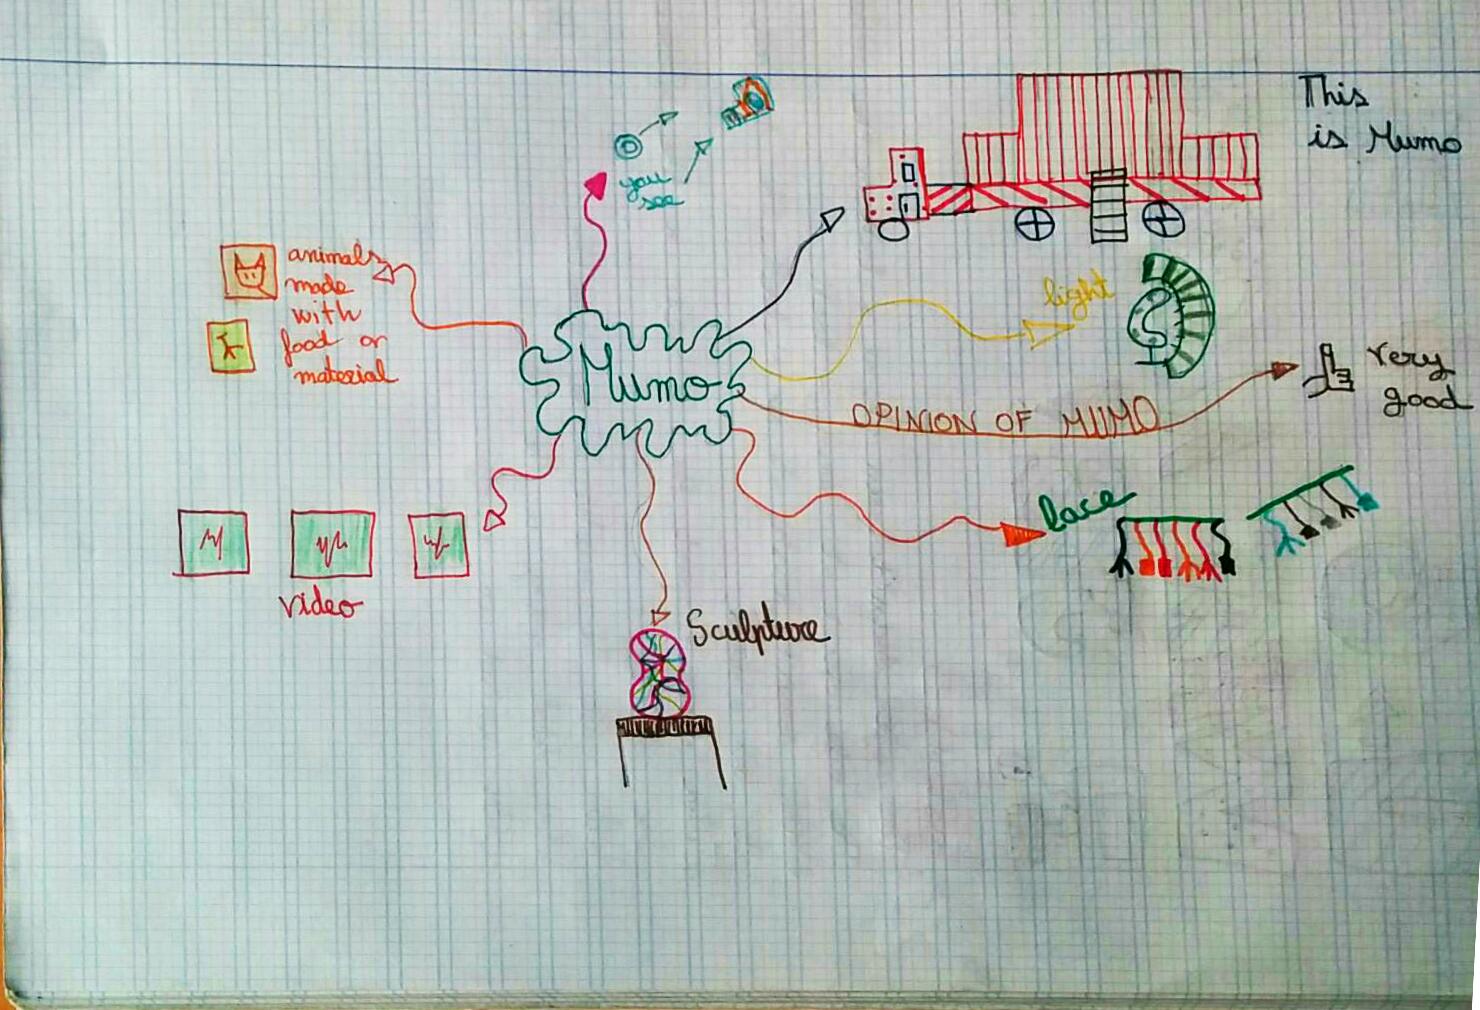 This
is Mumo
you
see
animals
made
with
food or
material
light
Mumo
very
good
OPINION OF MUMO
lace
video
Sculpture